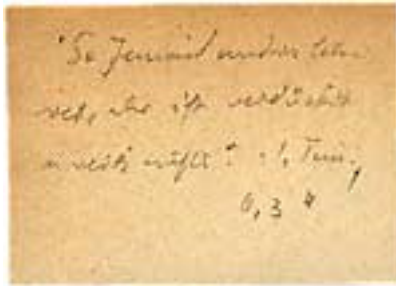 "So Jemand anders leh
ret, der ist verdüstert
u weiß nichts". 1. Tim.
6,3 4